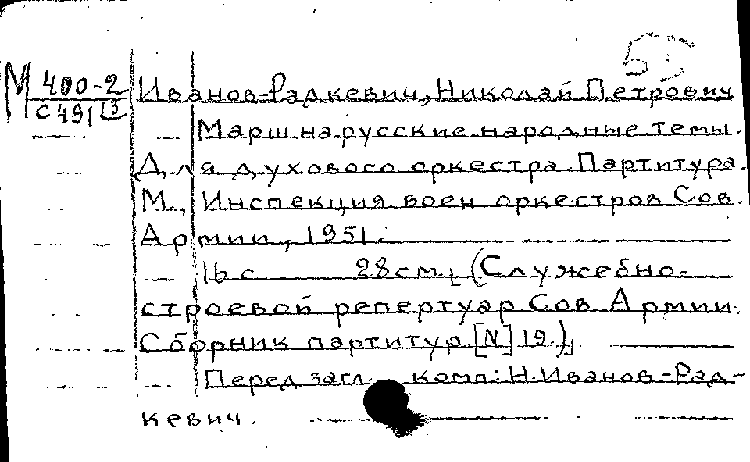 М 400-2
С 491
Иванов-Радкевич, Николай Петрович
Марш на русские народные темы.
Для духового оркестра. Партитура.
М., Инспекция воен оркестров Сов.
Армии, 1951.
16 с 28 см. (Служебно-
строевой репертуар Сов. Армии.
Сборник партитур. [N] 19.)
Перед загл. комп: Н. Иванов-Рад-
кевич.